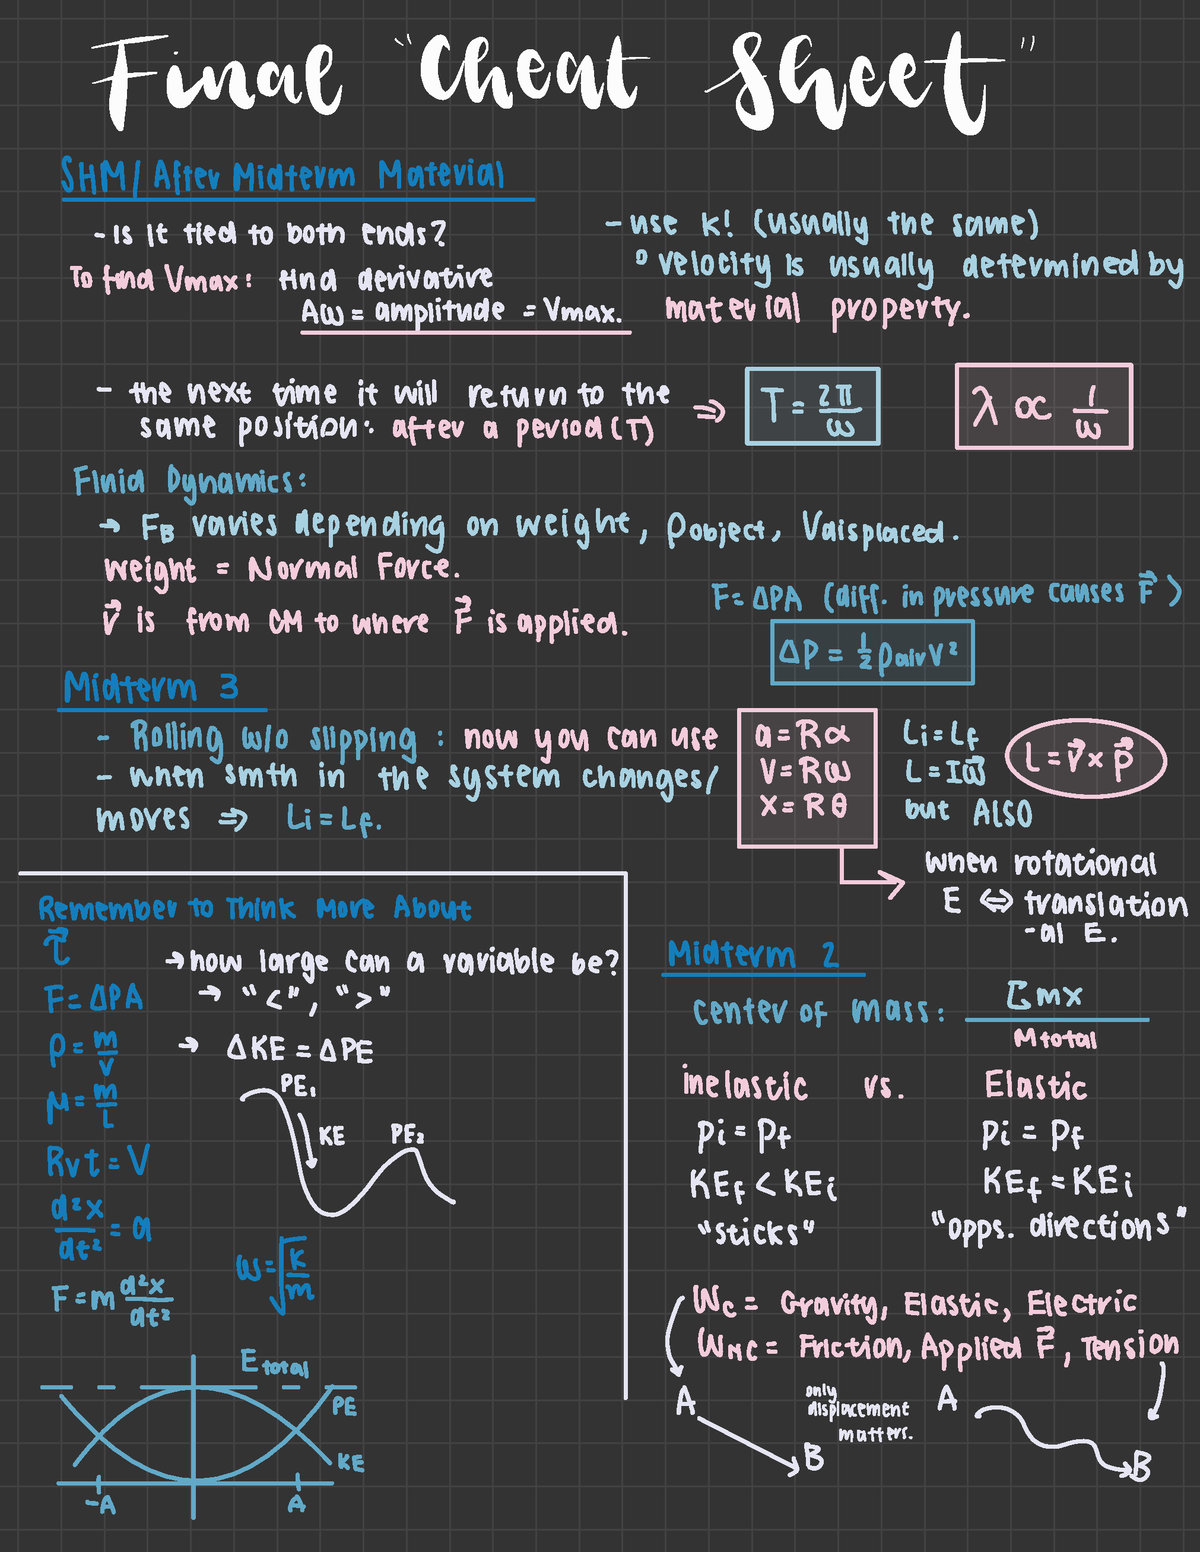 Final "Cheat Sheet"
SHM/After Midterm Material
- Is it tied to both ends?
To find Vmax: find derivative
Aω = amplitude = Vmax.
- use k! (usually the same)
° velocity is usually determined by
material property.
- the next time it will return to the
same position: after a period (T)
⇒
T = 2π/ω
λ ∝ 1/ω
Fluid Dynamics:
→ FB varies depending on weight, ρobject, Vdisplaced.
weight = Normal Force.
r⃗ is from CM to where F⃗ is applied.
F = ΔPA (diff. in pressure causes F⃗ )
ΔP = ½ ρair v²
Midterm 3
- Rolling w/o slipping : now you can use
- when smth in the system changes/
moves ⇒ Li = Lf.
a = Rα
V = Rω
X = Rθ
Li = Lf
L = Iω⃗
but ALSO
L = r⃗ × p⃗
when rotational
E ⇔ translation
-al E.
Remember to Think More About
τ⃗
F = ΔPA
ρ = m/v
μ = m/L
Rvt = V
d²x/dt² = a
F = m d²x/dt²
→ how large can a variable be?
→ "<", ">"
→ ΔKE = ΔPE
PE₁
KE
PE₂
ω = √k/m
E total
PE
KE
-A
A
Midterm 2
center of mass: Σmx
Mtotal
inelastic vs. Elastic
pi = pf
KEf < KEi
"sticks"
pi = pf
KEf = KEi
"opps. directions"
Wc = Gravity, Elastic, Electric
WNC = Friction, Applied F⃗, Tension
A
B
only
displacement
matters.
A
B